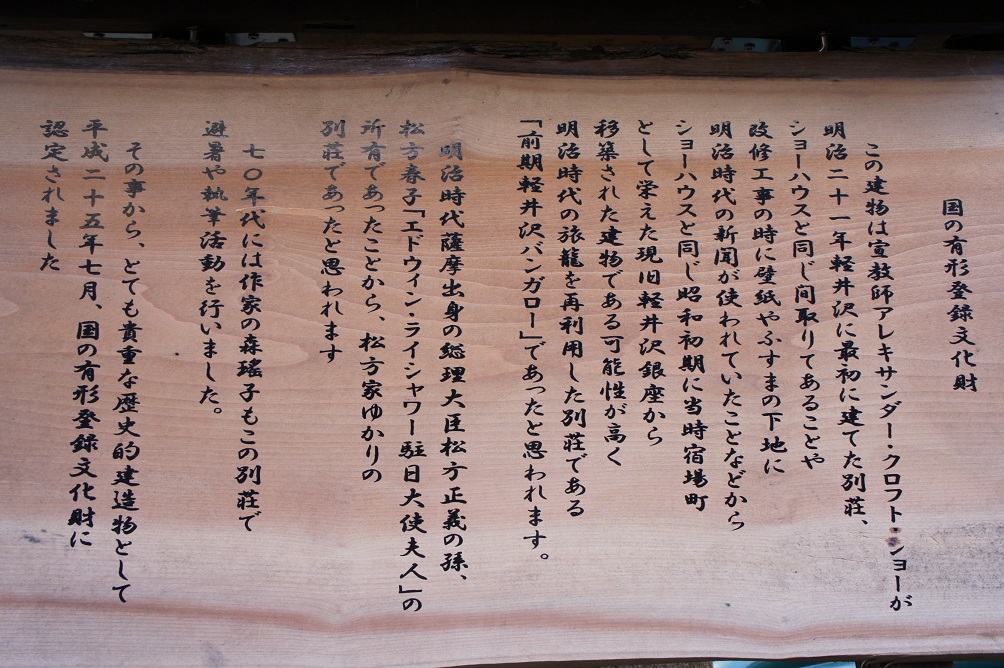 国の有形登録文化財
この建物は宣教師アレキサンダー・クロフト・ショーが
明治二十一年軽井沢に最初に建てた別荘、
ショーハウスと同じ間取りてあることや
改修工事の時に壁紙やふすまの下地に
明治時代の新聞が使われていたことなどから
ショーハウスと同じ昭和初期に当時宿場町
として栄えた現旧軽井沢銀座から
移築された建物である可能性が高く
明治時代の旅籠を再利用した別荘である
「前期軽井沢バンガロー」であったと思われます。
明治時代薩摩出身の総理大臣松方正義の孫、
松方春子「エドウイン・ライシャワー駐日大使夫人」の
所有であったことから、松方家ゆかりの
別荘であったと思われます
七〇年代には作家の森瑤子もこの別荘で
避暑や執筆活動を行いました。
その事から、とても貴重な歴史的建造物として
平成二十五年七月、国の有形登録文化財に
認定されました